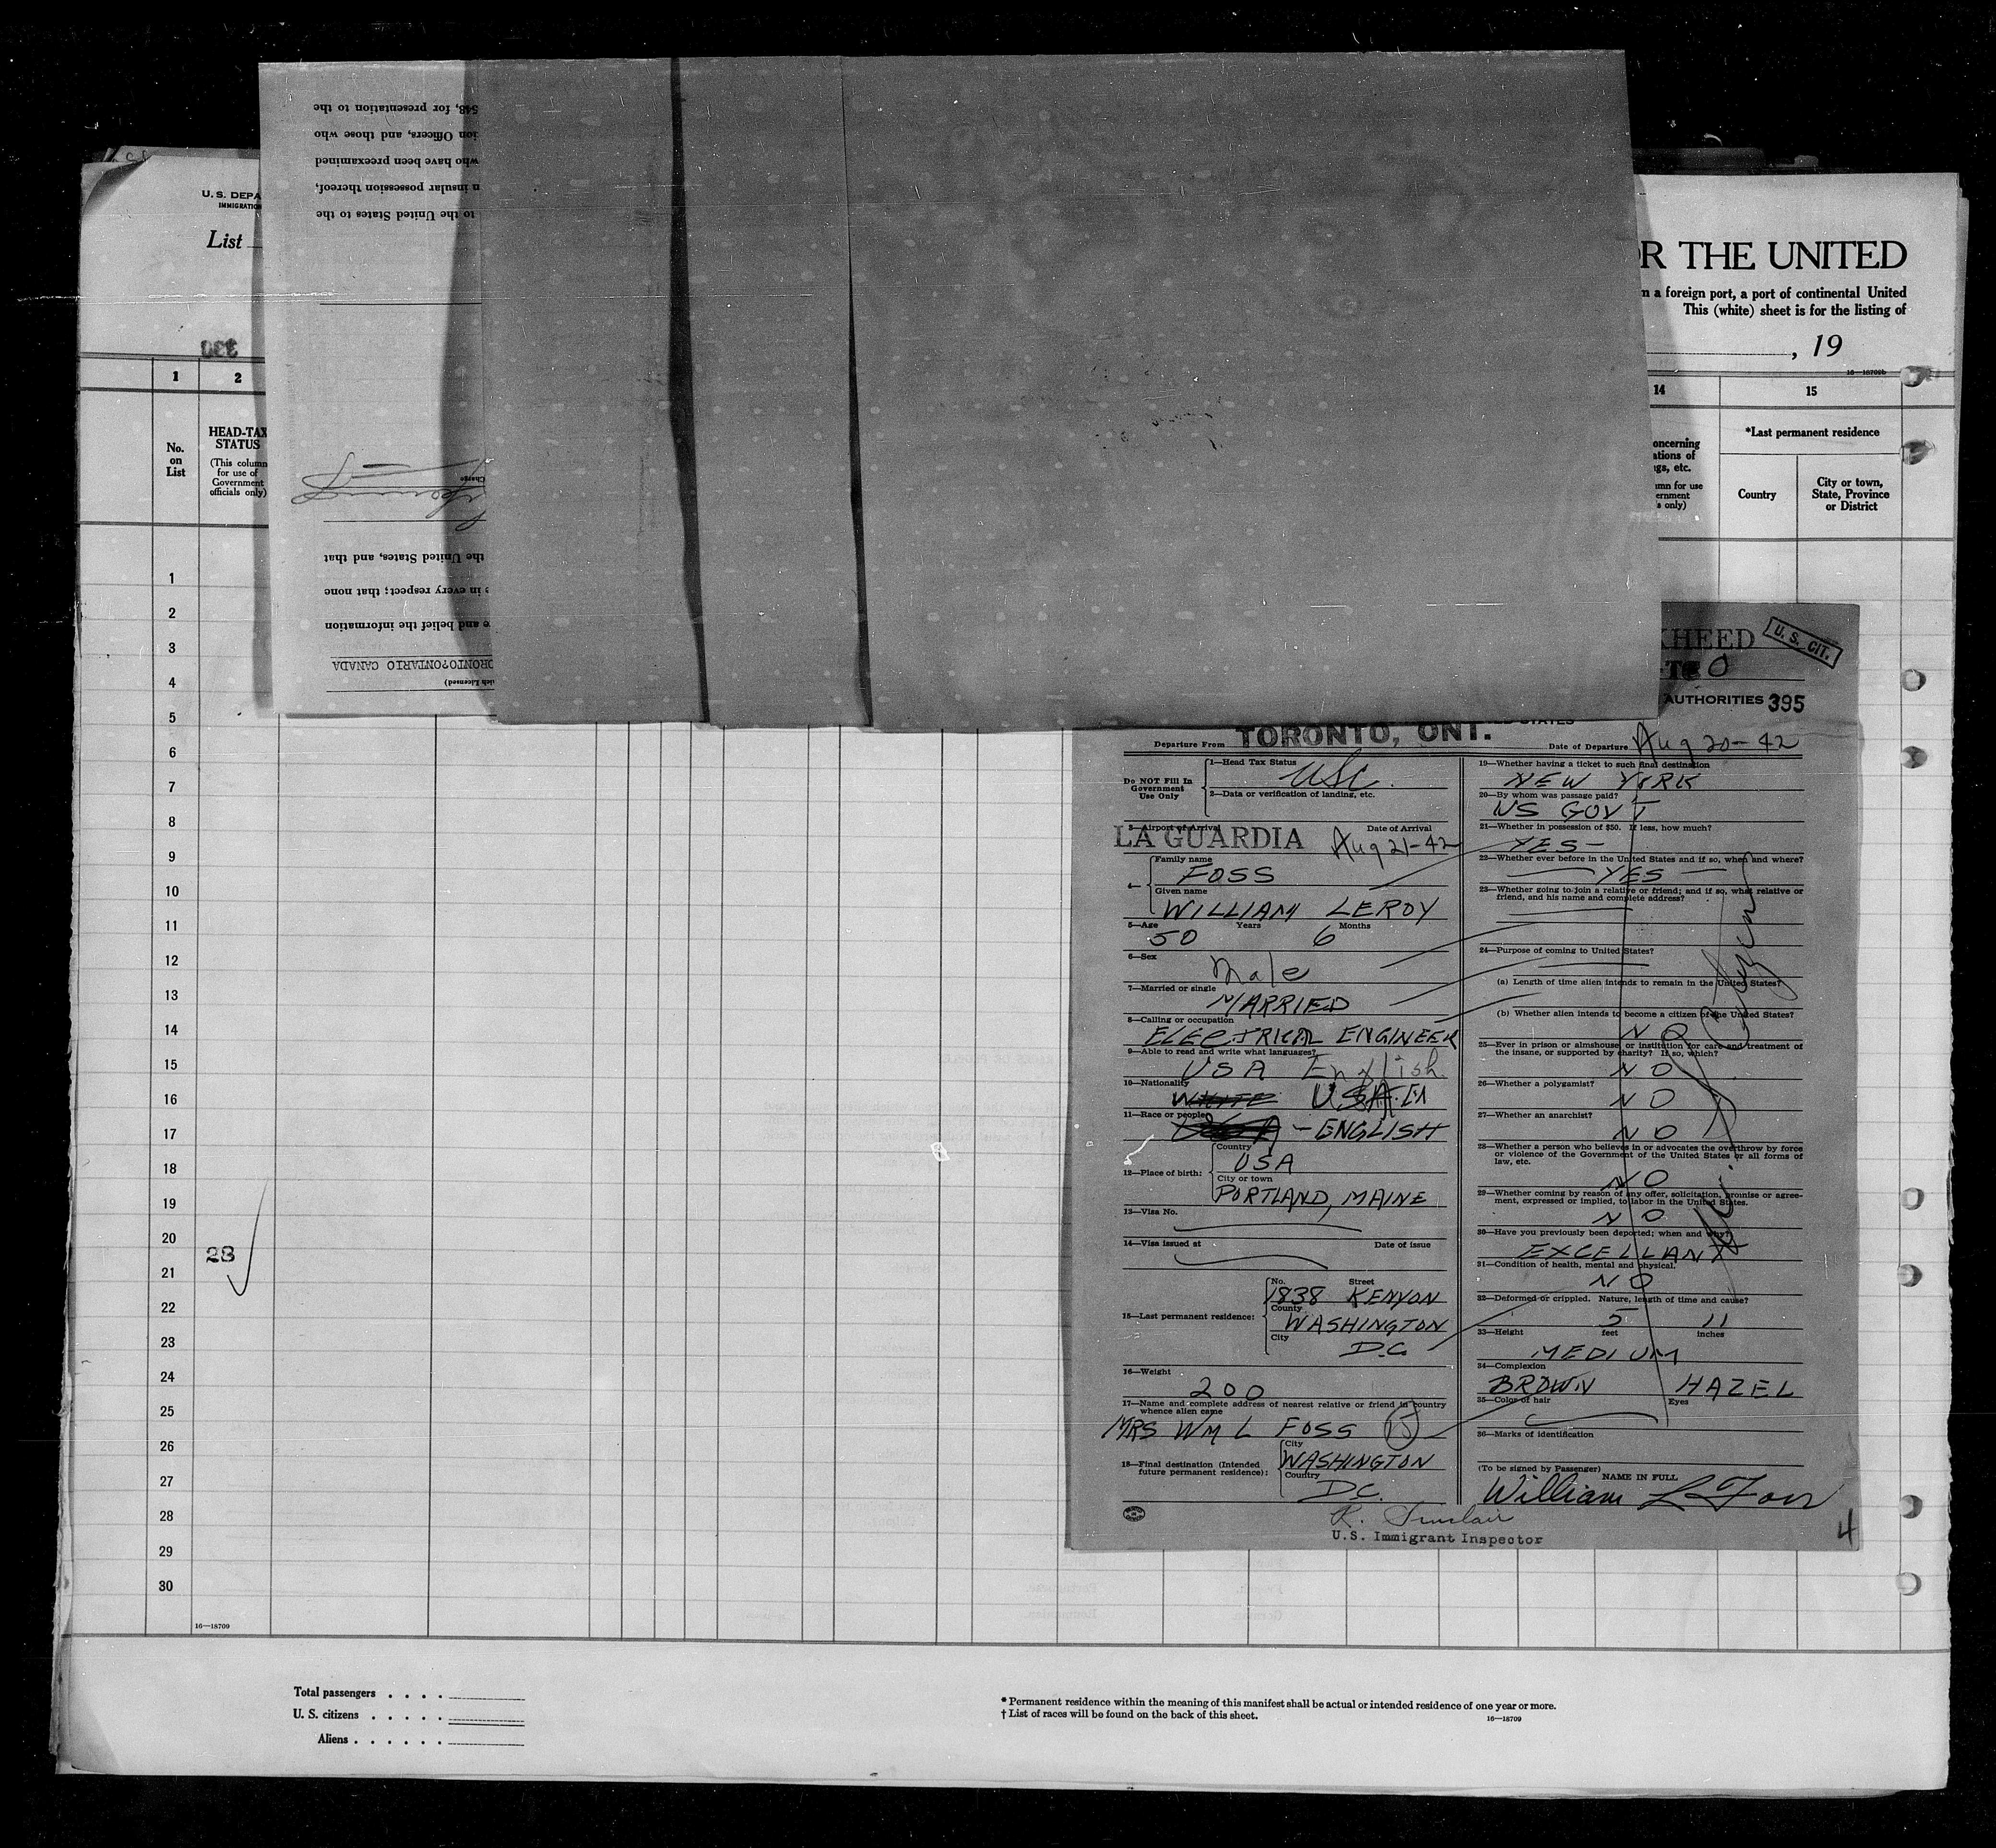 U. S. DEPA
IMMIGRATION
List
330
1 2
No. on List
HEAD-TAX STATUS
(This column for use of Government officials only)
548, for presentation to the
ion Officers, and those who
who have been preexamined
n insular possession thereof,
to the United States to the
Charge
the United States, and that
in every respect; that none
and belief the information
ORONTO?ONTARIO CANADA
ich Licensed)
OR THE UNITED
m a foreign port, a port of continental United
This (white) sheet is for the listing of
, 19
16—18709b
14 15
oncerning
ations of
gs, etc.
umn for use
ernment
s only)
*Last permanent residence
Country
City or town, State, Province or District
1
2
3
4
5
6
7
8
9
10
11
12
13
14
15
16
17
18
19
20
21
22
23
24
25
26
27
28
29
30
28
16—18709
KHEED
U. S. CIT.
AUTHORITIES 395
Departure From TORONTO, ONT.
Date of Departure Aug 20-42
Do NOT Fill In
Government
Use Only
1—Head Tax Status
USC
2—Data or verification of landing, etc.
3—Airport of Arrival Date of Arrival
LA GUARDIA Aug 21-42
4—
Family name
FOSS
Given name
WILLIAM LEROY
5—Age Years Months
50 6
6—Sex
Male
7—Married or single
MARRIED
8—Calling or occupation
ELECTRICAL ENGINEER
9—Able to read and write what languages?
USA English
10—Nationality
WHITE USA
11—Race or people
USA - ENGLISH
12—Place of birth:
Country
USA
City or town
PORTLAND, MAINE
13—Visa No.
14—Visa issued at Date of issue
15—Last permanent residence:
No. Street
1838 KENYON
County
WASHINGTON
City
D.C.
16—Weight
200
17—Name and complete address of nearest relative or friend in country
whence alien came
MRS WM L FOSS
18—Final destination (Intended
future permanent residence):
City
WASHINGTON
Country
D.C.
19—Whether having a ticket to such final destination
NEW YORK
20—By whom was passage paid?
US GOVT
21—Whether in possession of $50. If less, how much?
YES-
22—Whether ever before in the United States and if so, when and where?
YES
23—Whether going to join a relative or friend; and if so, what relative or
friend, and his name and complete address?
24—Purpose of coming to United States?
(a) Length of time alien intends to remain in the United States?
(b) Whether alien intends to become a citizen of the United States?
NO
25—Ever in prison or almshouse, or institution for care and treatment of
the insane, or supported by charity? If so, which?
NO
26—Whether a polygamist?
NO
27—Whether an anarchist?
NO
28—Whether a person who believes in or advocates the overthrow by force
or violence of the Government of the United States or all forms of
law, etc.
NO
29—Whether coming by reason of any offer, solicitation, promise or agree-
ment, expressed or implied, to labor in the United States.
NO
30—Have you previously been deported; when and why?
EXCELLANT
31—Condition of health, mental and physical.
NO
32—Deformed or crippled. Nature, length of time and cause?
5 11
33—Height feet inches
MEDIUM
34—Complexion
BROWN HAZEL
35—Color of hair Eyes
36—Marks of identification
(To be signed by Passenger)
NAME IN FULL
William L Foss
R. Sinclair
U.S. Immigrant Inspector
4
Total passengers . . . .
U. S. citizens . . . . .
Aliens . . . . . .
* Permanent residence within the meaning of this manifest shall be actual or intended residence of one year or more.
† List of races will be found on the back of this sheet.
16—18709